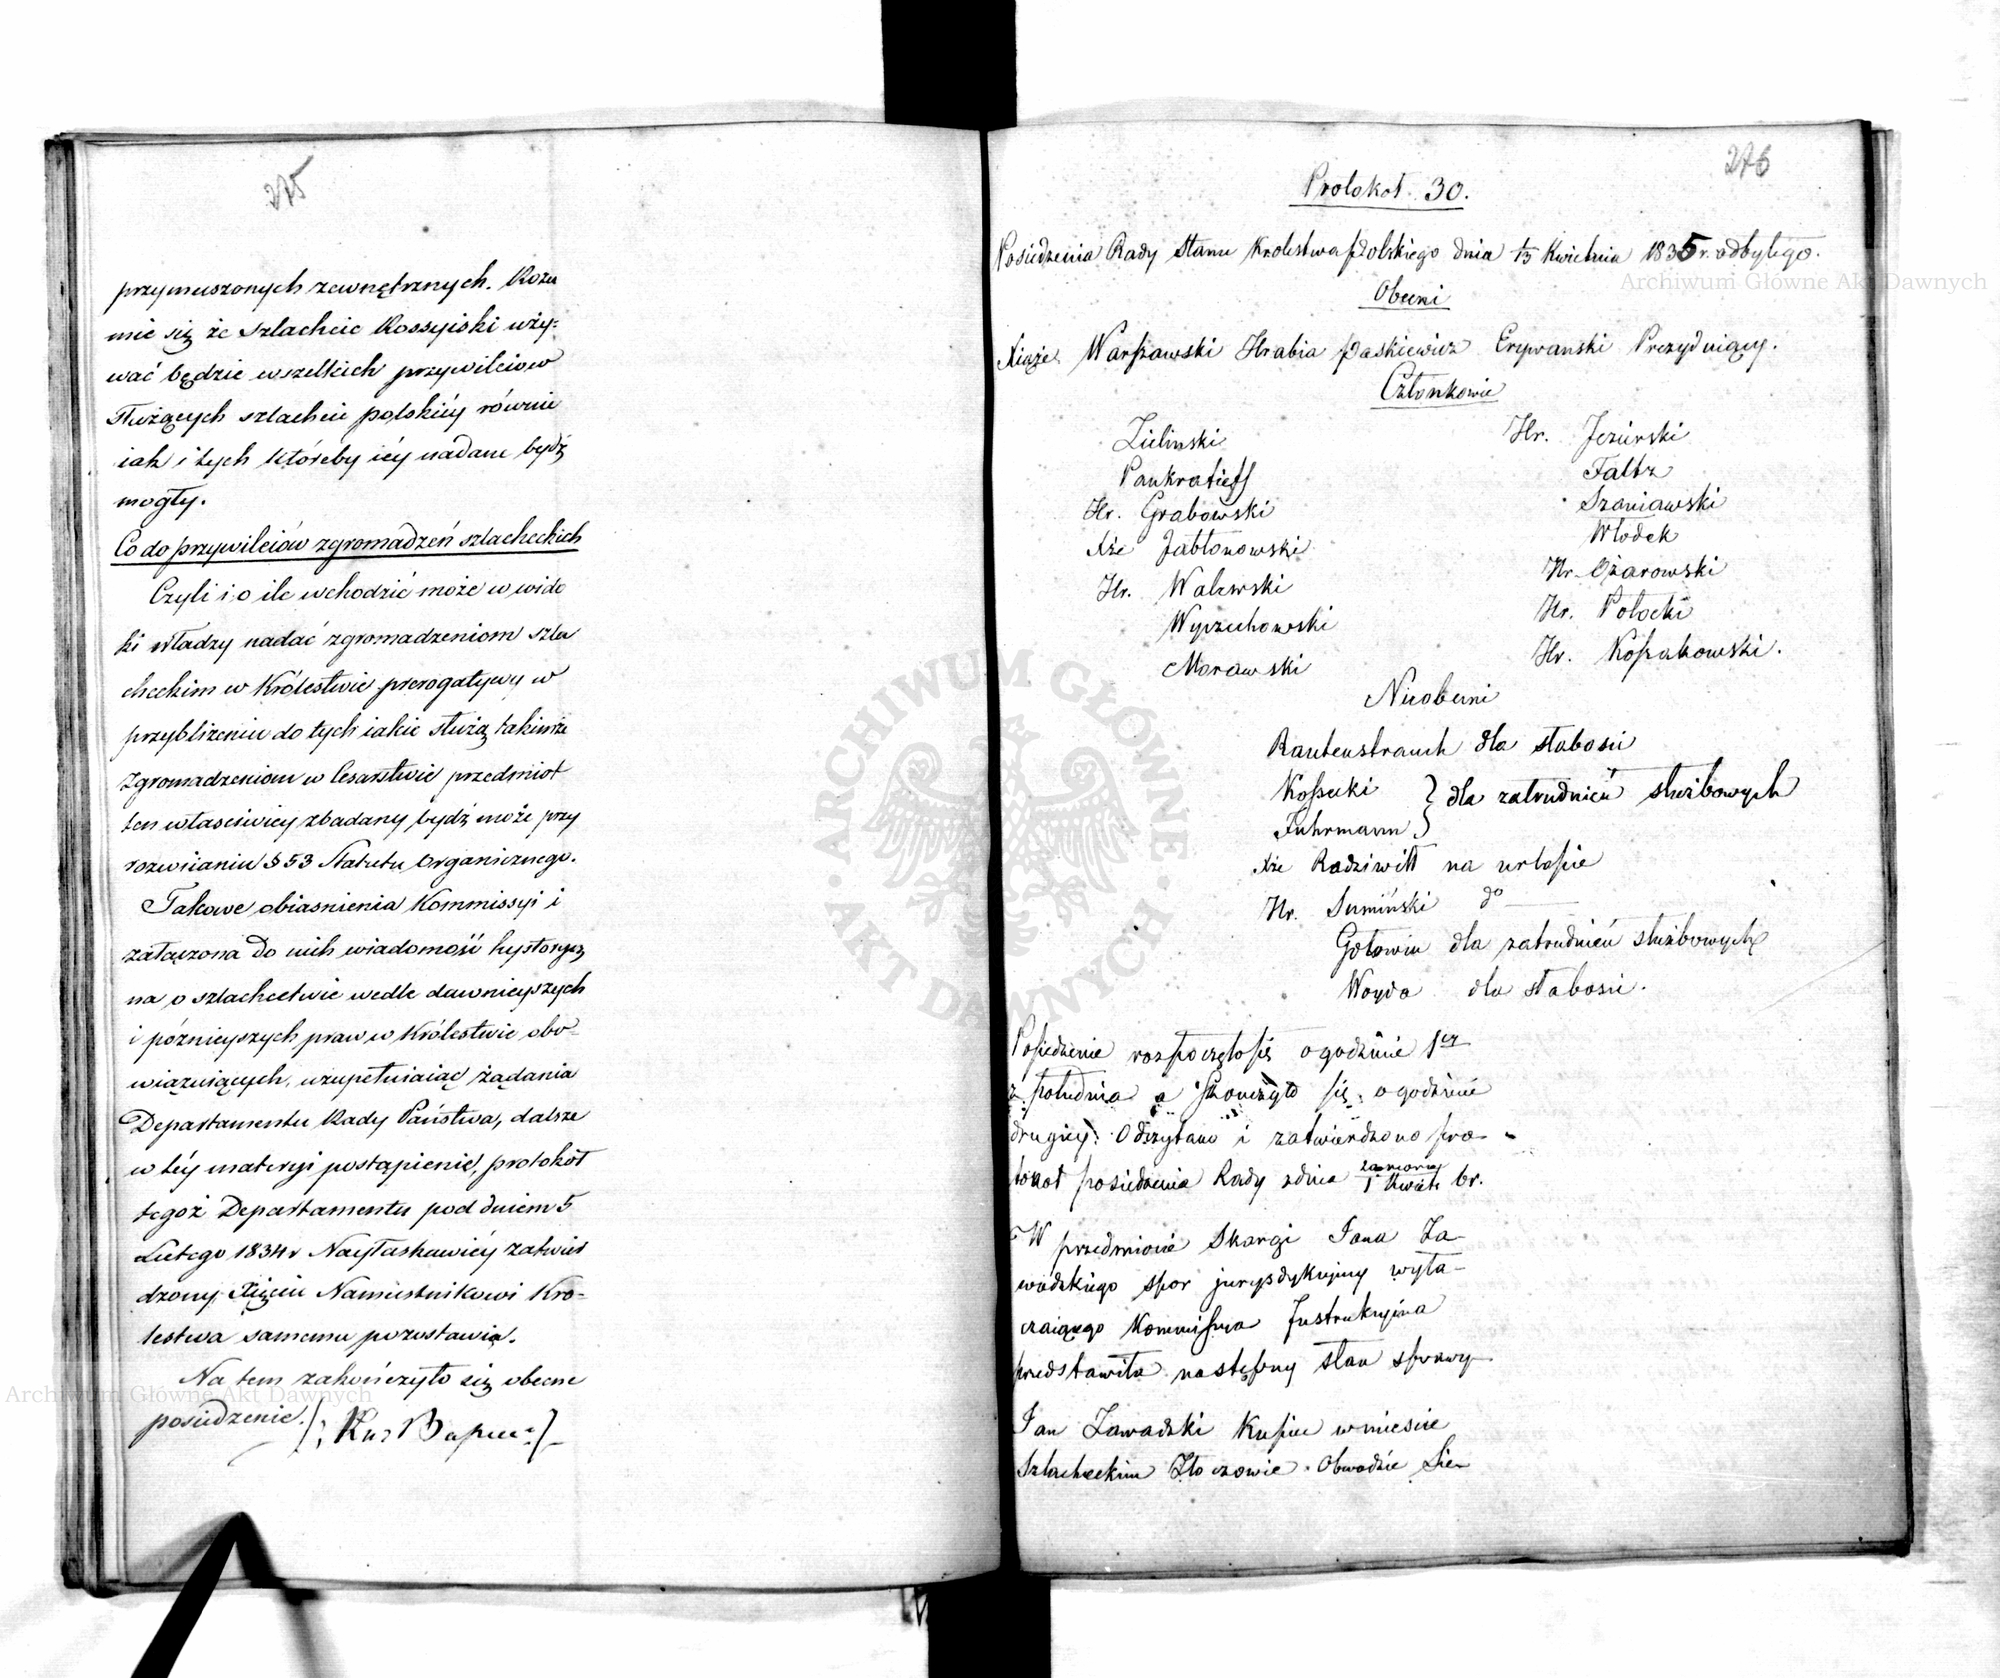 275
przymuszonych zewnętrznych. Rozu
mie się że szlachcic Rossyiski uży-
wać będzie wszelkich przywileiów
służących szlachcie polskiéy równie
iak i tych któreby iéy nadane bydź
mogły.
Co do przywileiów zgromadzeń szlacheckich
Czyli i o ile wchodzić może w wido
ki władzy nadać zgromadzeniom szla
checkim w Królestwie prerogatywy w
przybliżeniu do tych iakie służą takimże
Zgromadzeniom w Cesarstwie przedmiot
ten właściwiey zbadany bydź może przy
rozwiianiu § 53 Statutu Organicznego.
Takowe obiasnienia Kommissyi i
załączona do nich wiadomość hystorycz
na o szlachectwie wedle dawnieyszych
i póznieyszych praw w Królestwie obo-
wiązuiących, uzupełniaiąc żądania
Departamentu Rady Państwa, dalsze
w téy materyi postąpienie, protokół
tegoż Departamentu pod dniem 5
Lutego 1834 r Nayłaskawiéy zatwier
dzony Xięciu Namiestnikowi Kró-
lestwa samemu pozostawia.
Na tem zakończyło się obecne
posiedzenie.
276
Protokół 30.
Posiedzenia Rady Stanu Krolestwa Polskiego dnia 1/13 Kwietnia 1835 r. odbytego.
Obecni
Xiąże Warszawski Hrabia Paskiewicz Erywanski Prezyduiący.
Członkowie
Zielinski
Pankratieff
Hr. Grabowski
Xże Jabłonowski
Hr. Walewski
Wyczechowski
Morawski
Hr. Jezierski
Faltz
Szaniawski
Włodek
Hr. Ożarowski
Hr. Potocki
Hr. Kossakowski.
Nieobecni
Rautenstrauch dla słabosci
Kossecki } dla zatrudnień służbowych
Fuhrmann
Xże Radziwiłł na urlopie
Hr. Sumiński do
Gołowin dla zatrudnień służbowych
Woyda dla słabosci.
Posiedzenie rozpoczęło się o godzinie 1ey
z południa a skonczyło się o godzinie
drugiey. Odczytano i zatwierdzono pro-
tokoł posiedzenia Rady z dnia br.
W przedmiocie Skargi Jana Za-
wadzkiego spor jurysdykcyiny wyta-
czaiącego Kommissya Instrukcyina
przedstawiła następny stan sprawy
Jan Zawadzki Kupiec w miescie
Szlacheckim Złoczowie Obwodzie Sie-
Archiwum Główne Akt Dawnych
Archiwum Główne Akt Dawnych
ARCHIWUM GŁÓWNE · AKT DAWNYCH ·